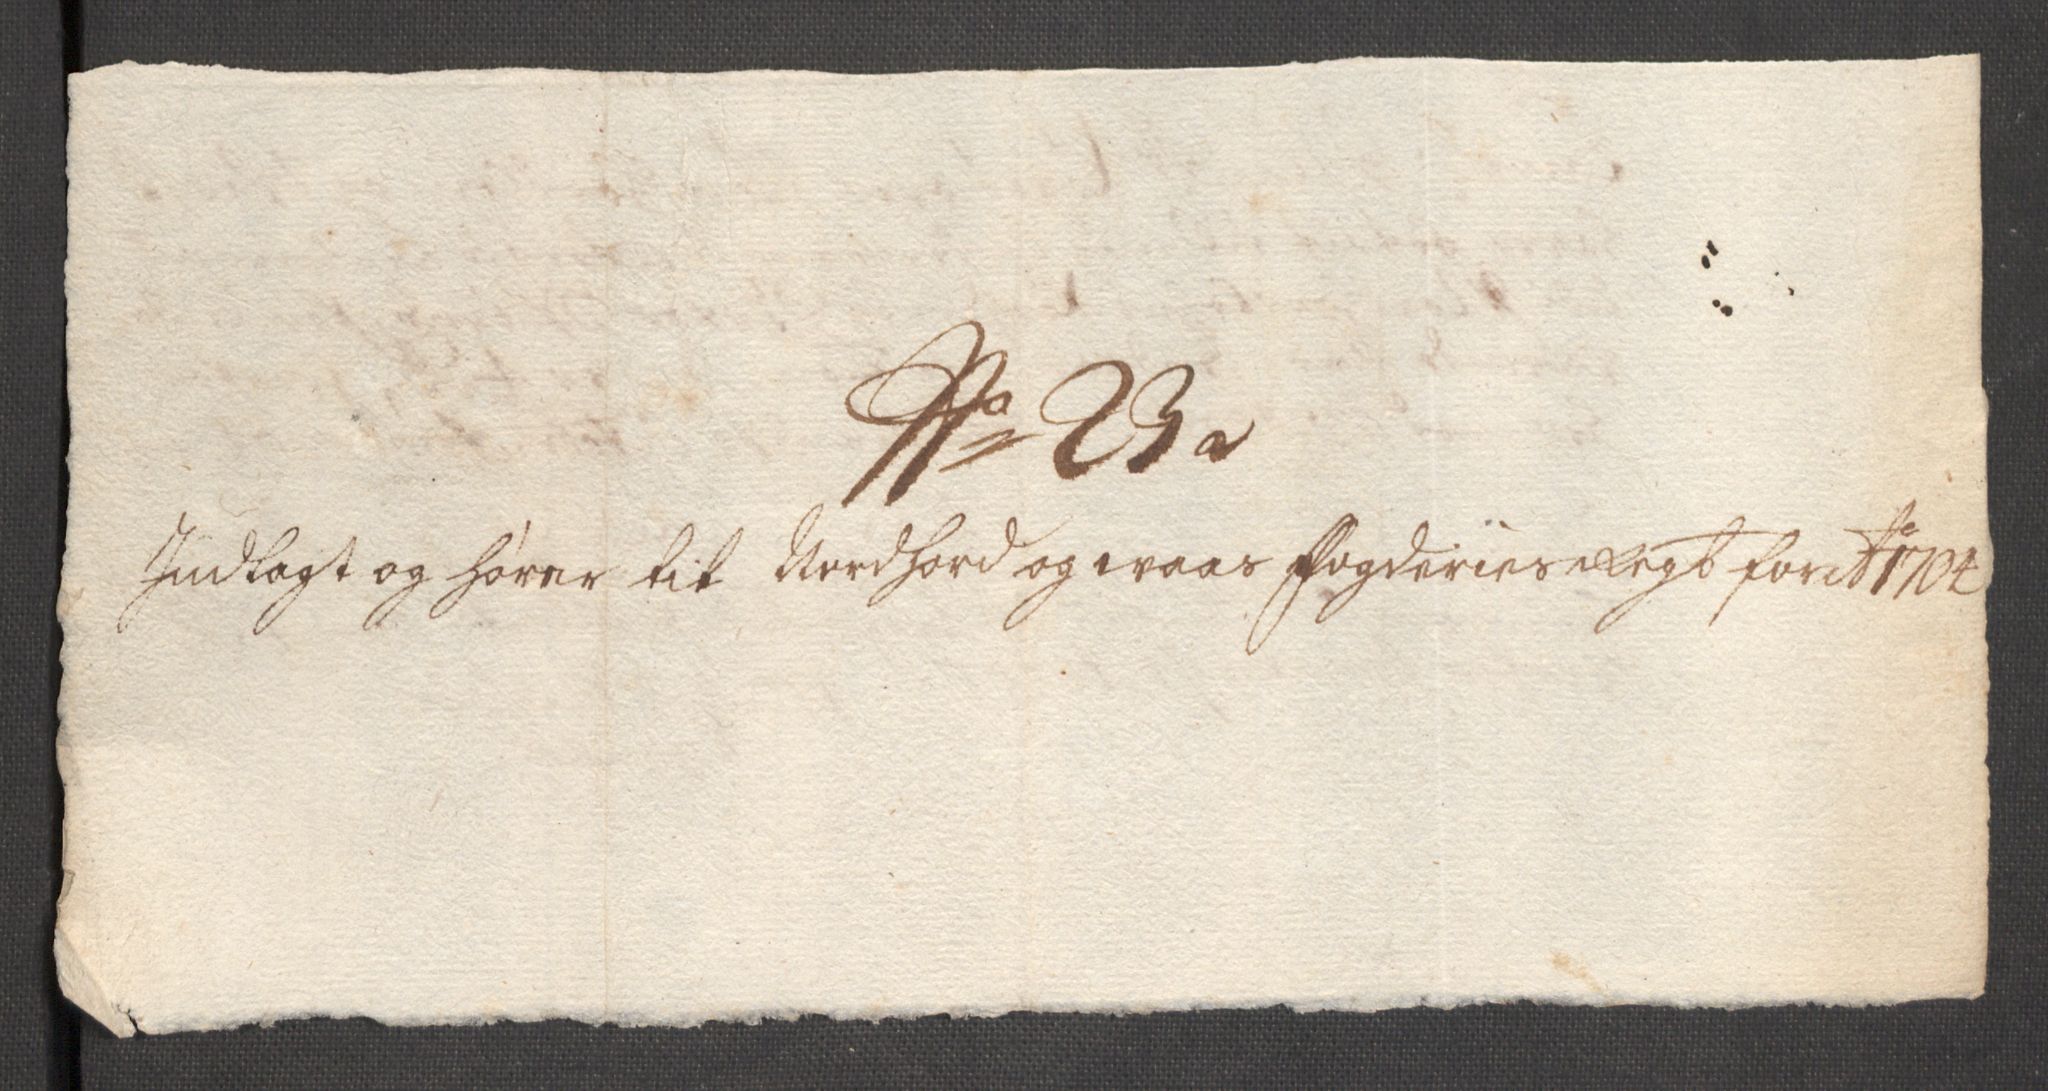 No 23a
Indlagt og hører til Nordhord og waas fogderies Regb for A° 1704